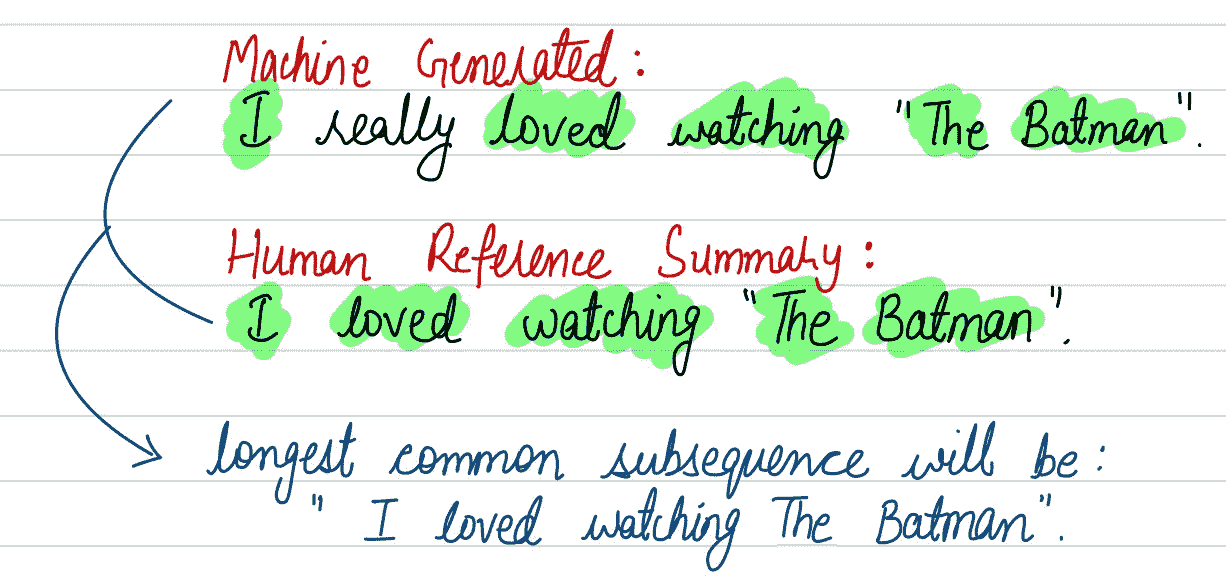 Machine Generated:
I really loved watching "The Batman".
Human Reference Summary:
I loved watching "The Batman".
longest common subsequence will be:
" I loved watching The Batman".